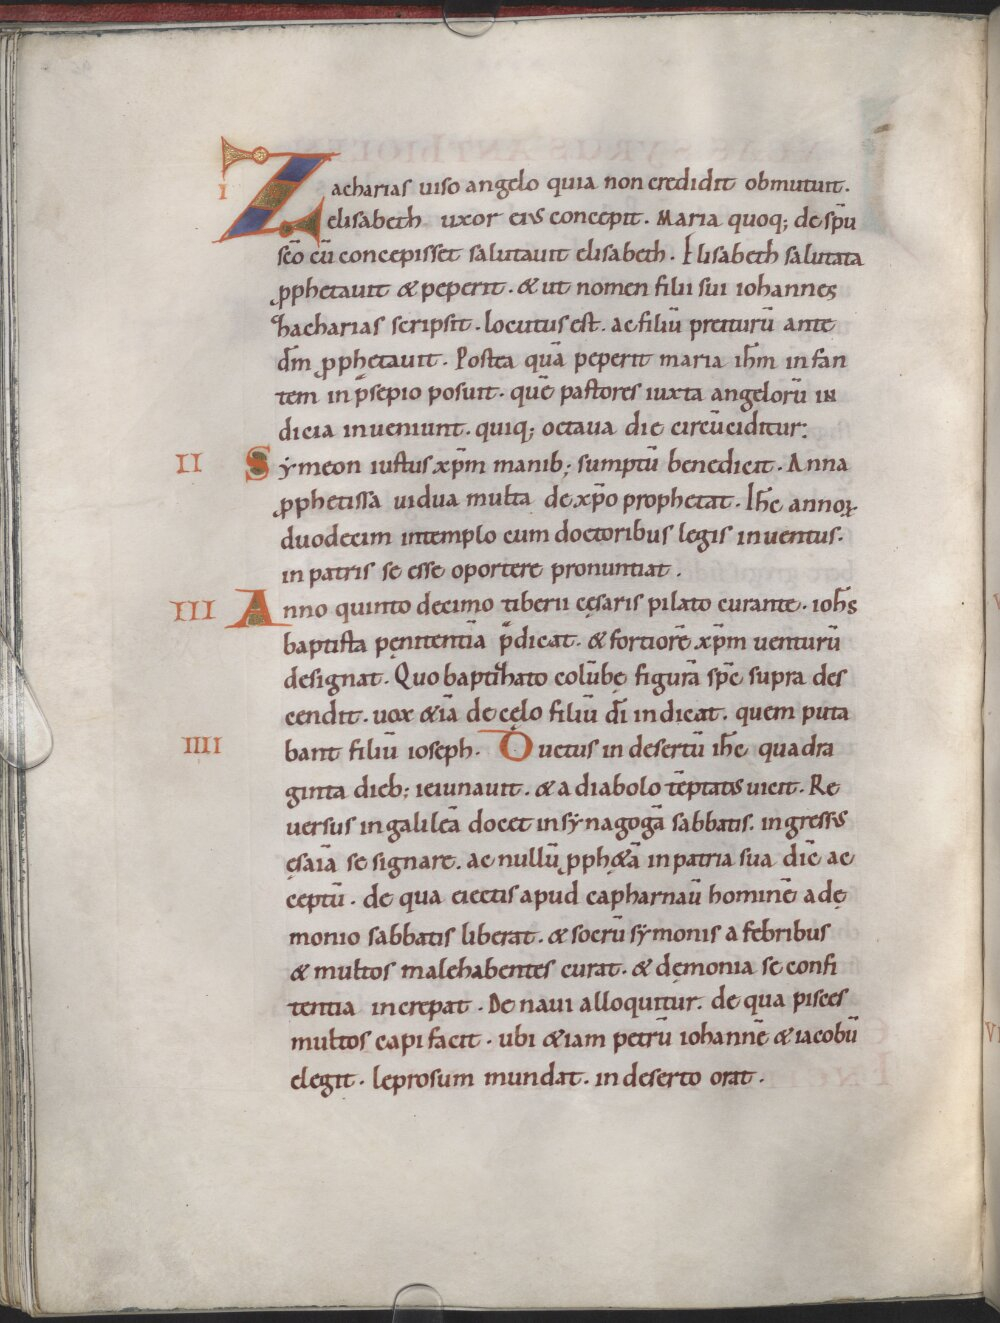 I Zacharias uiso angelo quia non credidit obmutuit.
elisabeth uxor eius concepit. Maria quoq; de sp̄u
sc̄o cū concepisset salutauit elisabeth. Elisabeth salutata
ꝓphetauit & peperit. & ut nomen filii sui iohannes
zacharias scripsit. locutus est. ac filiū preiturū ante
dm̄ ꝓphetauit. Postea quā peperit maria ih̄m infan
tem in p̄sepio posuit. quē pastores iuxta angelorū in
dicia inueniunt. quiq; octaua die circūciditur:
II Symeon iustus xp̄m manib; sumptū benedicit. Anna
ꝓphetissa uidua multa de xp̄o prophetat. Ih̄c annoꝝ
duodecim intemplo cum doctoribus legis inuentus.
in patris se esse oportere pronuntiat.
III Anno quinto decimo tiberii cęsaris pilato curante. ioh̄s
baptista pęnitentiā p̄dicat. & fortiorē xp̄m uenturū
designat. Quo baptizato colūbę figurā sp̄c supra des
cendit. uox &iā de cęlo filiū dī indicat. quem puta
IIII bant filiū ioseph. Ductus in desertū ih̄c quadra
ginta dieb; ieiunauit. & a diabolo tēptatus uicit. Re
uersus in galileā docet in synagogā sabbatis. ingressus
ęsaiā se signare. ac nullū ꝓph&ā in patria sua dic̄ ac
ceptū. de qua eiectis apud capharnaū hominē a dę
monio sabbatis liberat. & socrū symonis a febribus
& multos malehabentes curat. & dęmonia se confi
tentia increpat. De naui alloquitur. de qua pisces
multos capi facit. ubi &iam petrū iohannē & iacobū
elegit. leprosum mundat. in deserto orat.